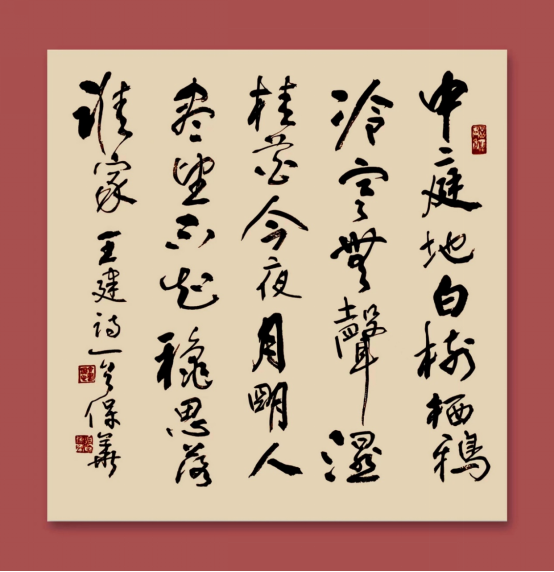 中庭地白樹栖鴉
冷露無聲濕
桂花今夜月明人
盡望不知穐思落
誰家 王建詩一首 保華